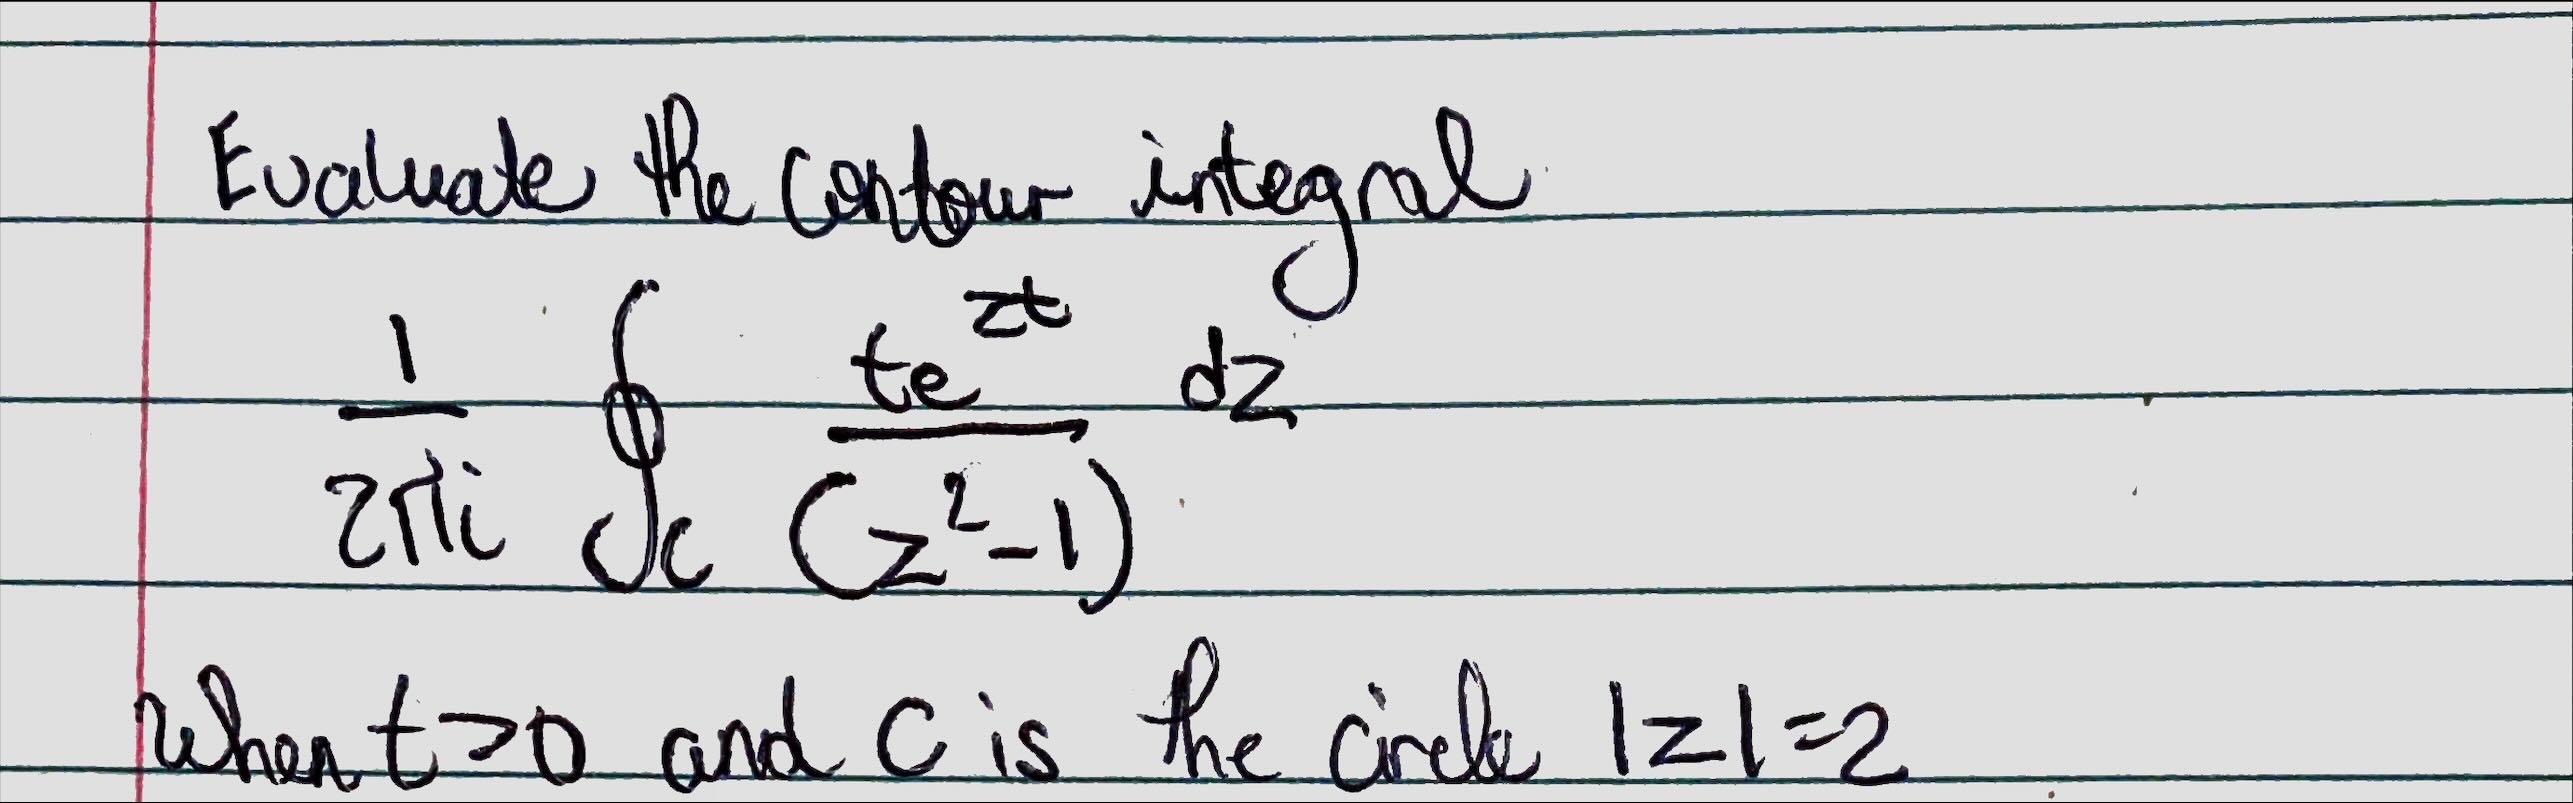 Evaluate the contour integral
1/2πi ∮c te^zt/(z²-1) dz
when t>0 and C is the circle |z|=2